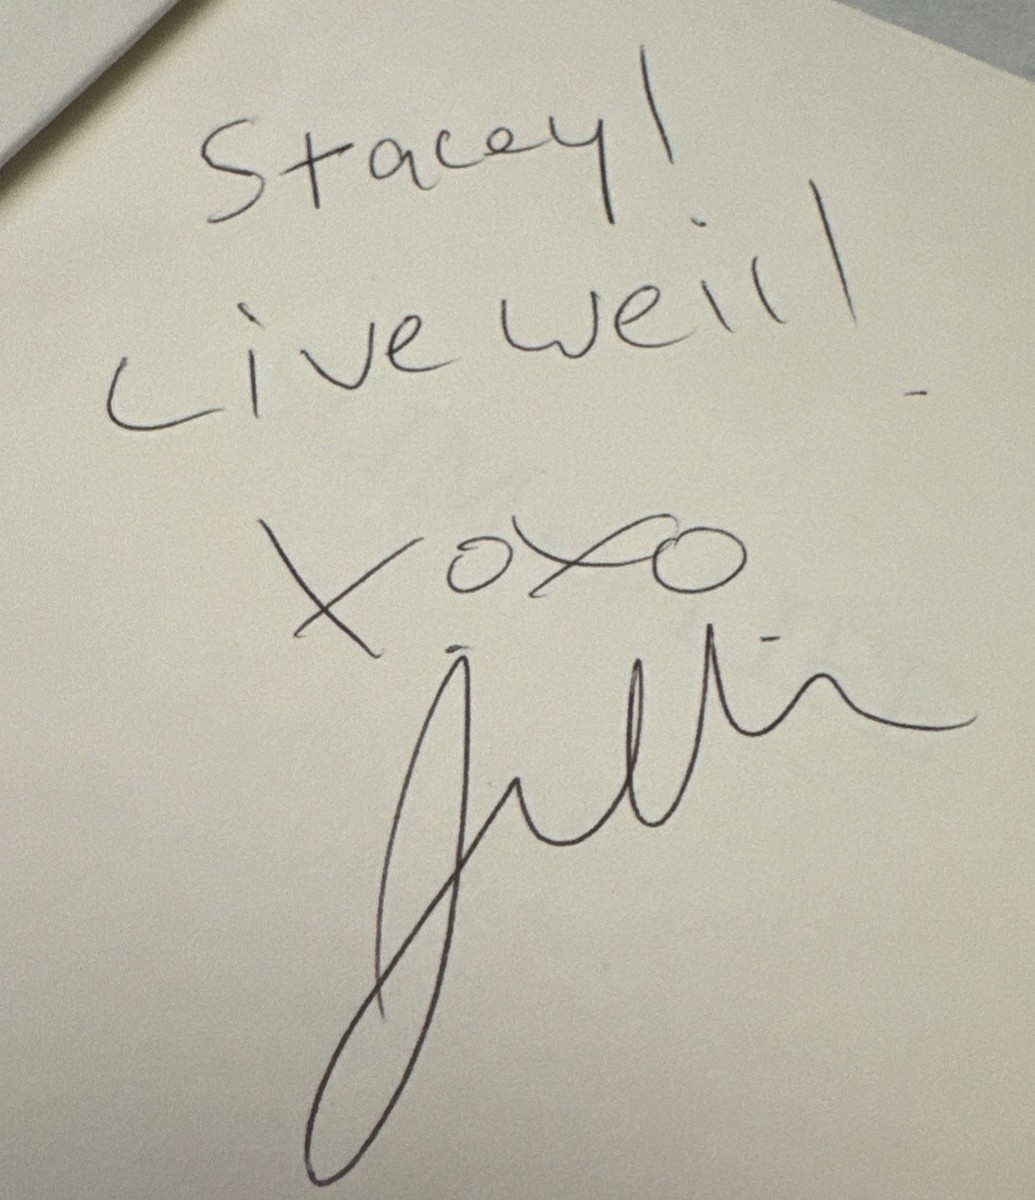 Stacey!
Live well!
xoxo
Jillian